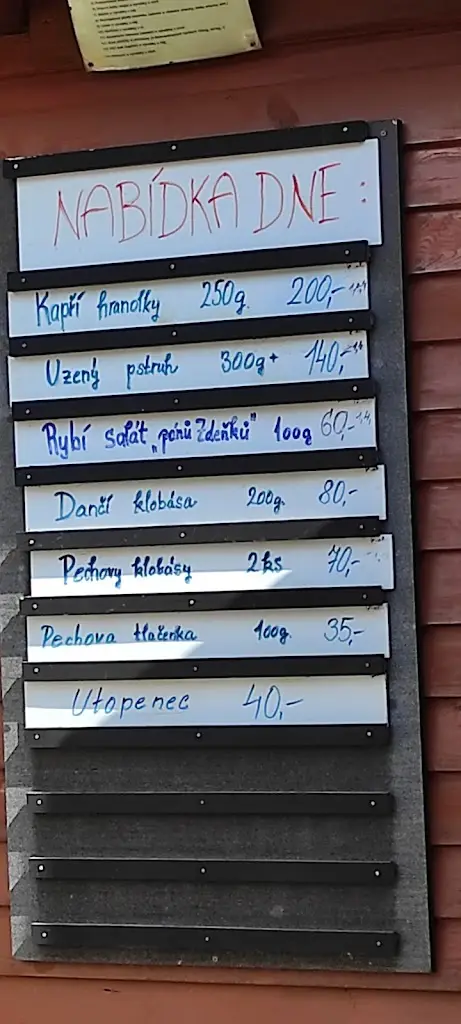 NABÍDKA DNE :
Kapří hranolky 250g. 200,- 1,4
Uzený pstruh 300g+ 140,- 1,4
Rybí salát „pánů Zdeňků" 100g 60,- 1,4
Dančí klobása 200g. 80,-
Pechovy klobásy 2ks 70,-
Pechova tlačenka 100g. 35,-
Utopenec 40,-